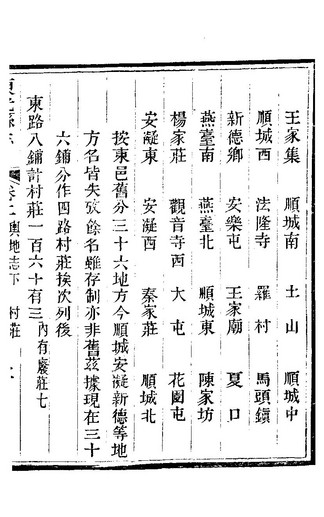 王家集　順城南　土山　順城中
順城西　法隆寺　羅村　馬頭鎮
新德鄉　安樂屯　王家廟　夏口
燕臺南　燕臺北　順城東　陳家坊
楊家莊　觀音寺西　大屯　花園屯
安凝東　安凝西　秦家莊　順城北
按東邑舊分三十六地方今順城安凝新德等地
方名皆失攷餘名雖存制亦非舊茲據現在三十
六鋪分作四路村莊挨次列後
東路八鋪計村莊一百六十有三內有廢莊七
輿地志下　村莊